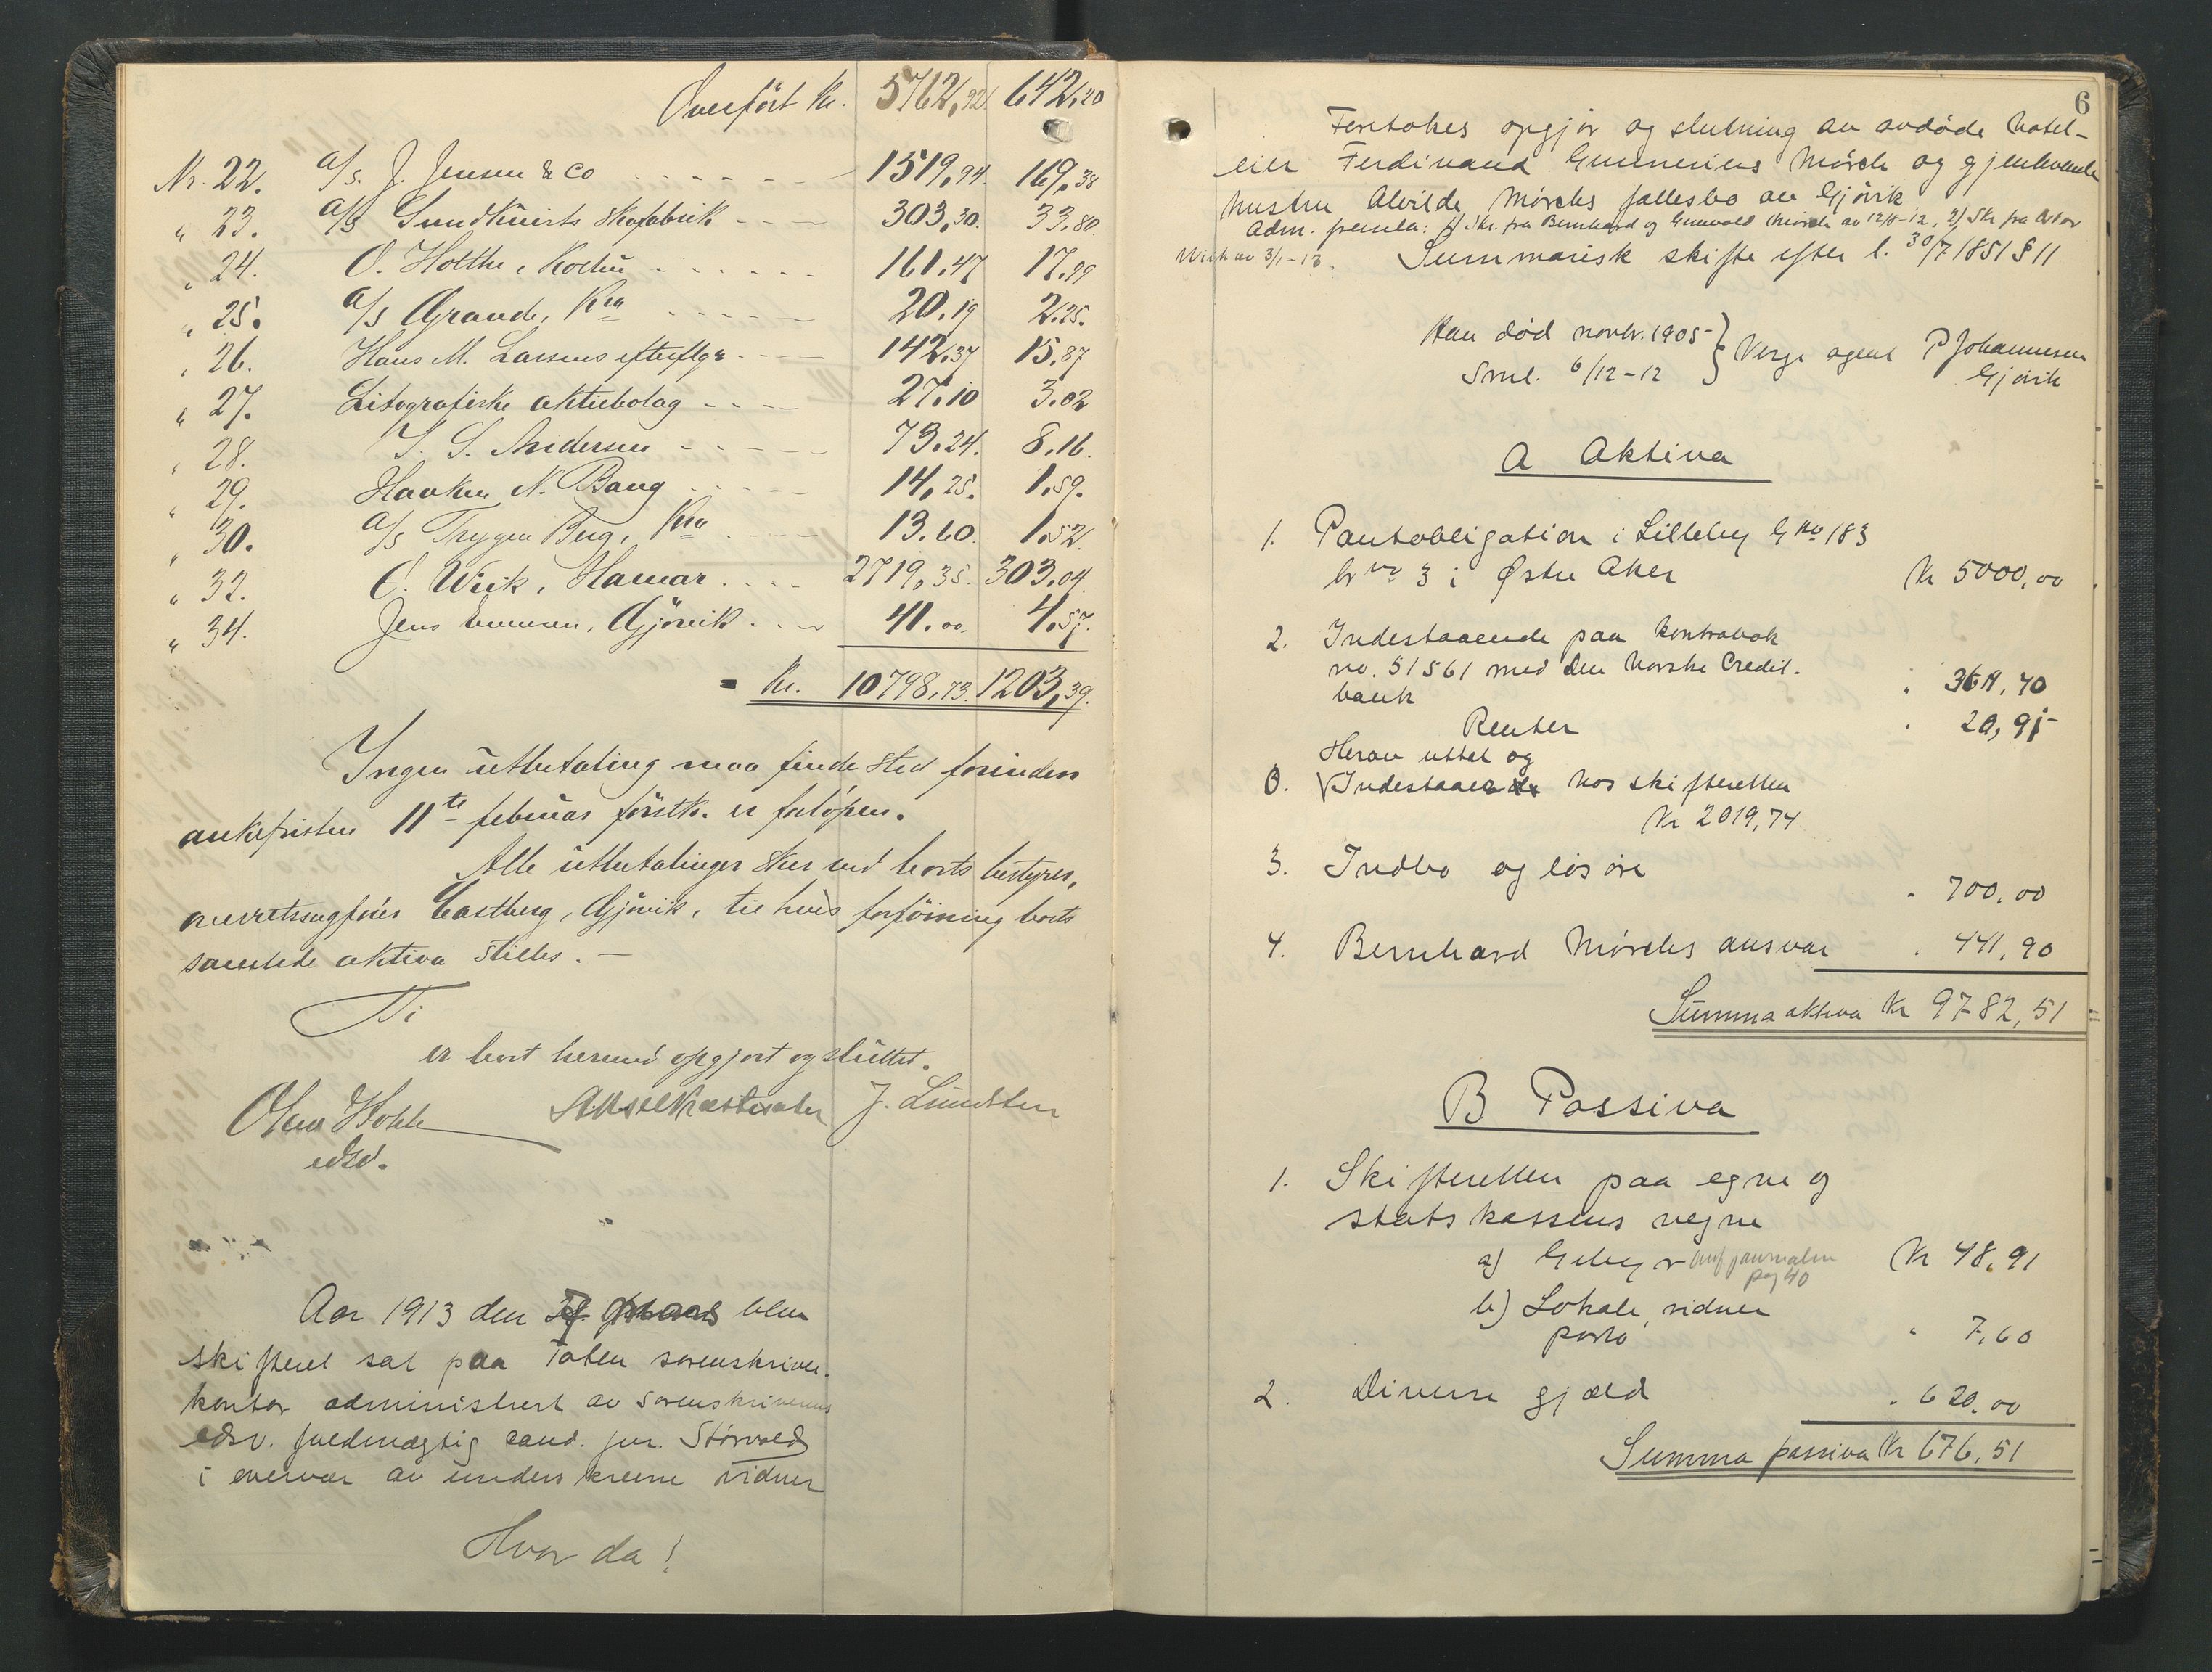 Overført Kr. 5762,92 642,20
Nr. 22. A/S. J. Jensen & Co 1519,94. 169,38
" 23. A/S Sundkvists Skofabrik 303,30. 33,80.
" 24. O. Holthe, Kolbu 161,47 17,99
" 25. A/S Grande, Kra 20,19 2,25.
" 26. Hans M. Larsens efterflgr. 142,37 15,87
" 27. Litografiske aktiebolag 27,10 3,02
" 28. S. Andersen 73,24. 8,16.
" 29. Haakon N. Bang 14,25. 1,59.
" 30. A/S Trygve Berg, Kra 13,60. 1,52.
" 32. C. Wiik, Hamar. 2719,35. 303,04
" 34. Jens Gjøvik 41,00. 4,57.
= Kr. 10798,73. 1203,39.
Ingen utbetaling maa finde sted forinden
ankefristen 11te februar førstk. er forløpen.
Alle utbetalinger sker ved boets bestyrer,
overretssagfører Castberg, Gjøvik, til hvis forføining boets
samlede aktiva stilles. –
Ti
er boet hermed opgjort og sluttet.
J. Lundsten
edsv.
Aar 1913 den blev
skifteret sat paa Toten sorenskriver-
kontor administrert av sorenskriverens
edsv. fuldmægtig cand. jur. Størvold
i overvær av underskrevne vidner
Hvor da!
6
Foretokes opgjør og slutning av avdøde hotel-
eier Ferdinand Gunnerius Mørch og gjenlevende
hustru Alvilde Mørchs fællesbo av Gjøvik
Adm. fremla: 1) Skr. fra Bernhard og Mørch av 12/11-12, 2) Skr fra
av 3/1-13. Summarisk skifte efter l. 30/7 1851 § 11
Han død novbr. 1905 } Verge agent P Johannesen
Sml. 6/12-12 Gjøvik
A Aktiva
1. Pantobligation i Lilleby Gno 183
br no 3 i Østre Aker Kr 5000,00
2. Indestaaende paa kontrabok
no. 51561 med Den Norske Credit-
bank " 3619,70
Renter " 20,91
Herav uttat og
0. Indestaaende hos skifteretten
Kr 2019,74
3. Indbo og løsøre " 700,00
4. Bernhard Mørchs ansvar " 441,90
Summa aktiva Kr 9782,51
B Passiva
1. Skifteretten paa egne og
statskassens vegne
a) Gebyr anf. journalen Kr 48,91
pag 40
b) Lokale, vidner
porto " 7,60
2. Diverse gjæld " 620,00
Summa passiva Kr 676,51